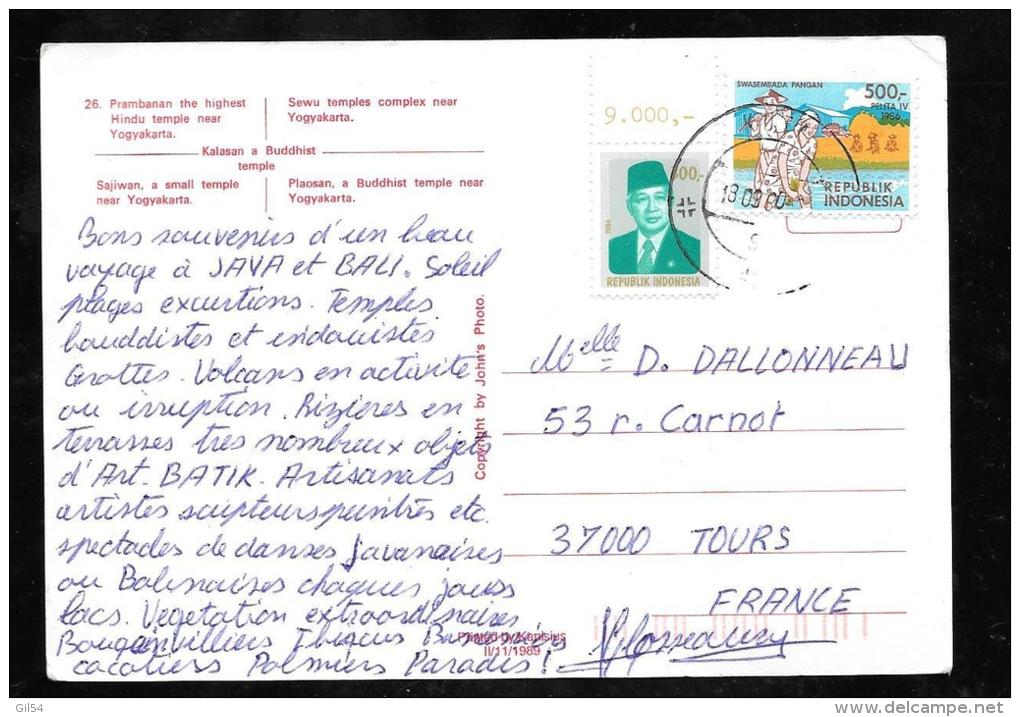 26. Prambanan the highest
Hindu temple near
Yogyakarta.
Sewu temples complex near
Yogyakarta.
Kalasan a Buddhist
temple
Sajiwan, a small temple
near Yogyakarta.
Plaosan, a Buddhist temple near
Yogyakarta.
9.000,-
SWASEMBADA PANGAN
500,-
PELITA IV
1986
REPUBLIK
INDONESIA
1986
REPUBLIK INDONESIA
18 09 90
Bons souvenirs d'un beau
voyage à JAVA et BALI. Soleil
plages excurtions. Temples
bouddistes et indouistes
Grottes. Volcans en activité
ou irruption. Rizières en
terrasses tres nombreux objets
d'Art. BATIK. Artisanats
artistes sculpteurs peintres etc.
spectacles de danses Javanaises
ou Balinaises chaques jours
lacs. Vegetation extraordinaires
Bouganvilliers Ibiscus
cocotiers Palmiers Paradis !
Copyright by John's Photo.
Printed by Kanisius
II/11/1989
Melle D. DALLONNEAU
53 r. Carnot
37000 TOURS
FRANCE
Gil54
delcampe.net